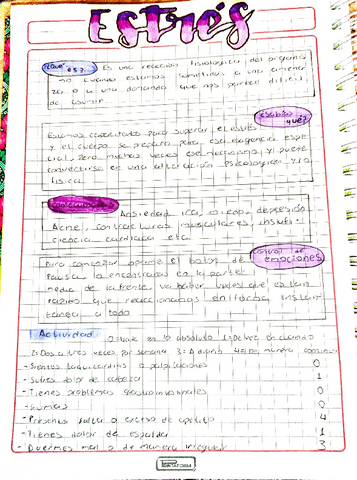 Estrés
¿Qué es? Es una reacción fisiológica del organis
mo cuando estamos sometidos a una amena
za o a una demanda que nos parece difícil
de asumir.
Estamos capacitados para superar el estrés
y el cuerpo se prepara para esa exigencia espe
cial, pero muchas veces ese mecanismo puede
convertirse en una alteración psicológica y/o
física.
Ansiedad, ira, depresión
Acne, contracturas musculares, insufi
ciencia cardiaca etc.
control de
emociones
Para comenzar oprime el botón de
Pausa, la encontraras en la parte
media de la frente, va haber veces que
que reaccionarás en forma instan
tánea a todo
Actividad 0: Nada en lo absoluto 1: De vez en cuando
2: Dos a tres veces por semana 3: A diario 4: De manera continua
- Sientes taquicardia o palpitaciones 0
- Sufres dolor de cabeza 1
- Tienes problemas gastrointestinales 0
0
- Presentas falta o exceso de apetito 4
- Tienes dolor de espalda 1
- Duermes mal o de manera irregular 3